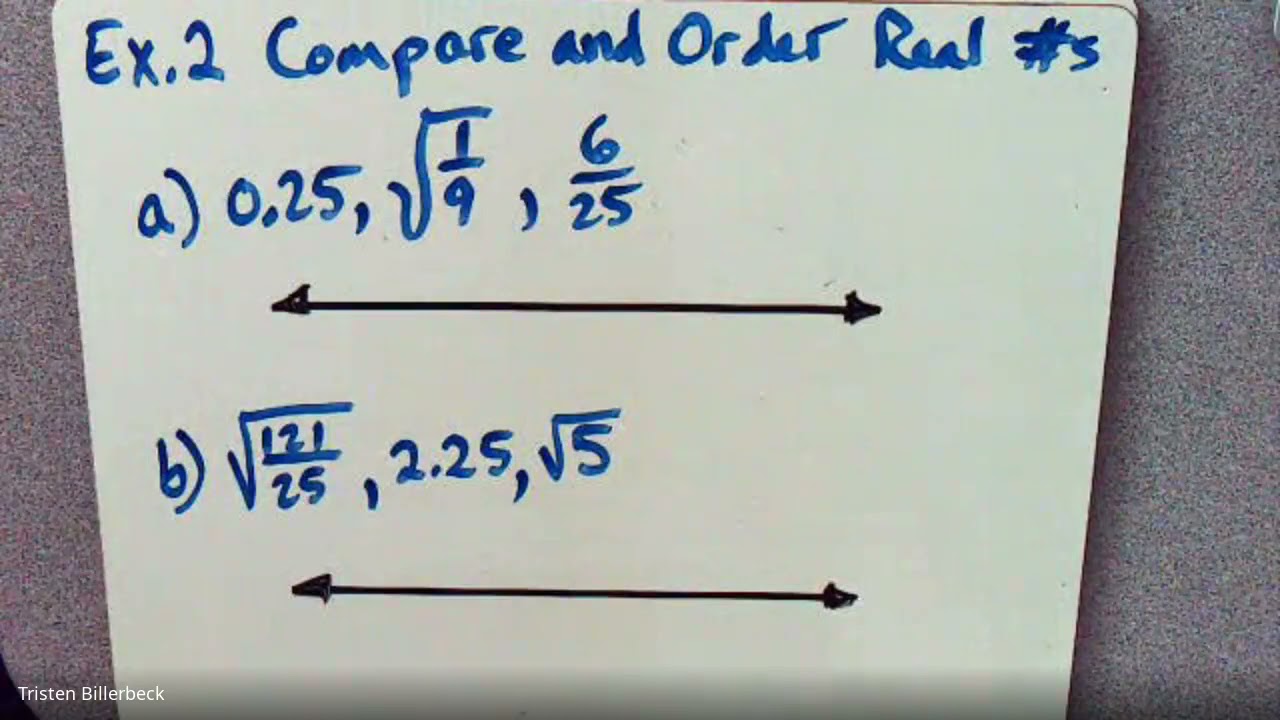 Ex.2 Compare and Order Real #s
a) 0.25, √(1/9), 6/25
b) √(121/25), 2.25, √5
Tristen Billerbeck